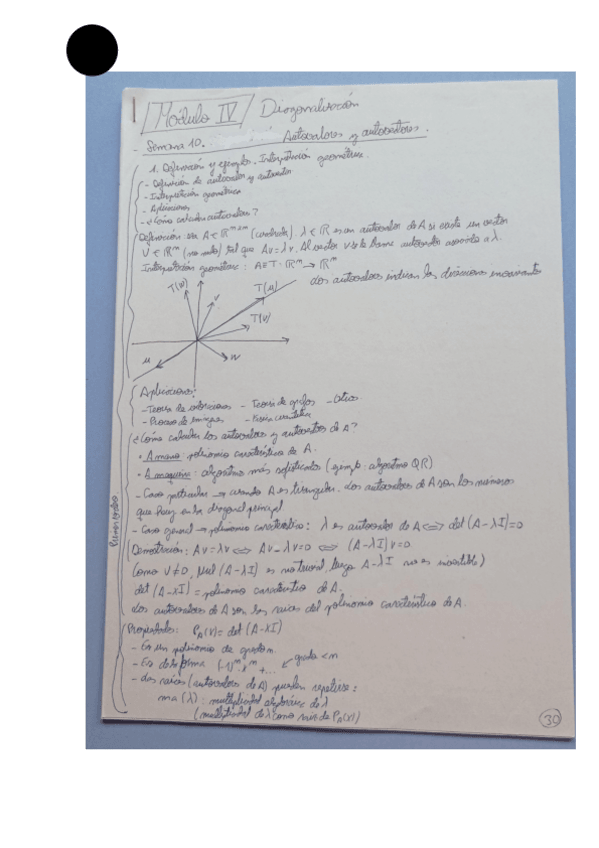 Módulo IV Diagonalización
- Semana 10. Autovalores y autovectores.
1. Definición y ejemplos. Interpretación geométrica.
- Definición de autovalor y autovector
- Interpretación geométrica
- Aplicaciones
- ¿Cómo calcular autovalores?
Definición: sea A ∈ ℝᵐˣᵐ (cuadrada). λ ∈ ℝ es un autovalor de A si existe un vector
V ∈ ℝᵐ (no nulo) tal que Av = λv. Al vector v se le llama autovector asociado a λ.
Interpretación geométrica: A ≡ T: ℝᵐ → ℝᵐ
Los autovectores indican las direcciones invariantes
T(w) v T(u)
T(v)
u w
Aplicaciones:
- Teoría de vibraciones - Teoría de grafos - Otros
- Proceso de imágenes - Física cuántica
¿Cómo calcular los autovalores y autovectores de A?
• A mano: polinomio característico de A.
• A máquina: algoritmos más sofisticados (ejemplo: algoritmo QR)
- Caso particular → cuando A es triangular. Los autovalores de A son los números
que hay en la diagonal principal.
- Caso general → polinomio característico: λ es autovalor de A ⟺ det(A-λI)=0
Demostración: Av = λv ⟺ Av - λv = 0 ⟺ (A-λI)v=0
Como V≠0, (A-λI) es no trivial, luego A-λI no es invertible)
det (A-XI) = polinomio característico de A.
Los autovalores de A son las raíces del polinomio característico de A.
Propiedades: P_A(X) = det (A-XI)
- Es un polinomio de grado m.
- Es de la forma (-1)ᵐxᵐ + ... grado < m
- Las raíces (autovalores de A) pueden repetirse:
ma (λ): multiplicidad algebraica de λ
(multiplicidad de λ como raíz de P_A(X))
30